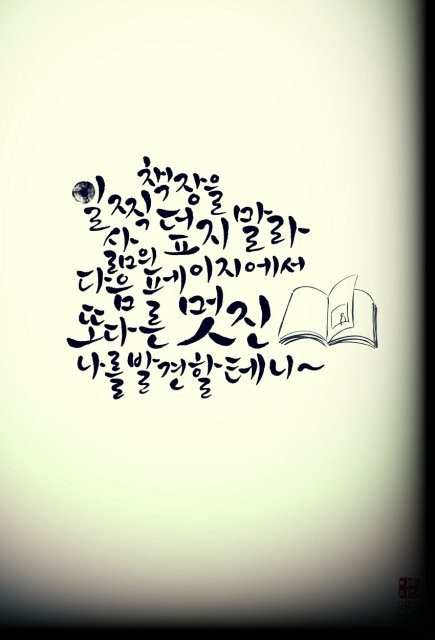 책장을
일찍 덮지 말라
삶의
다음 페이지에서
또다른 멋진
나를 발견할테니~